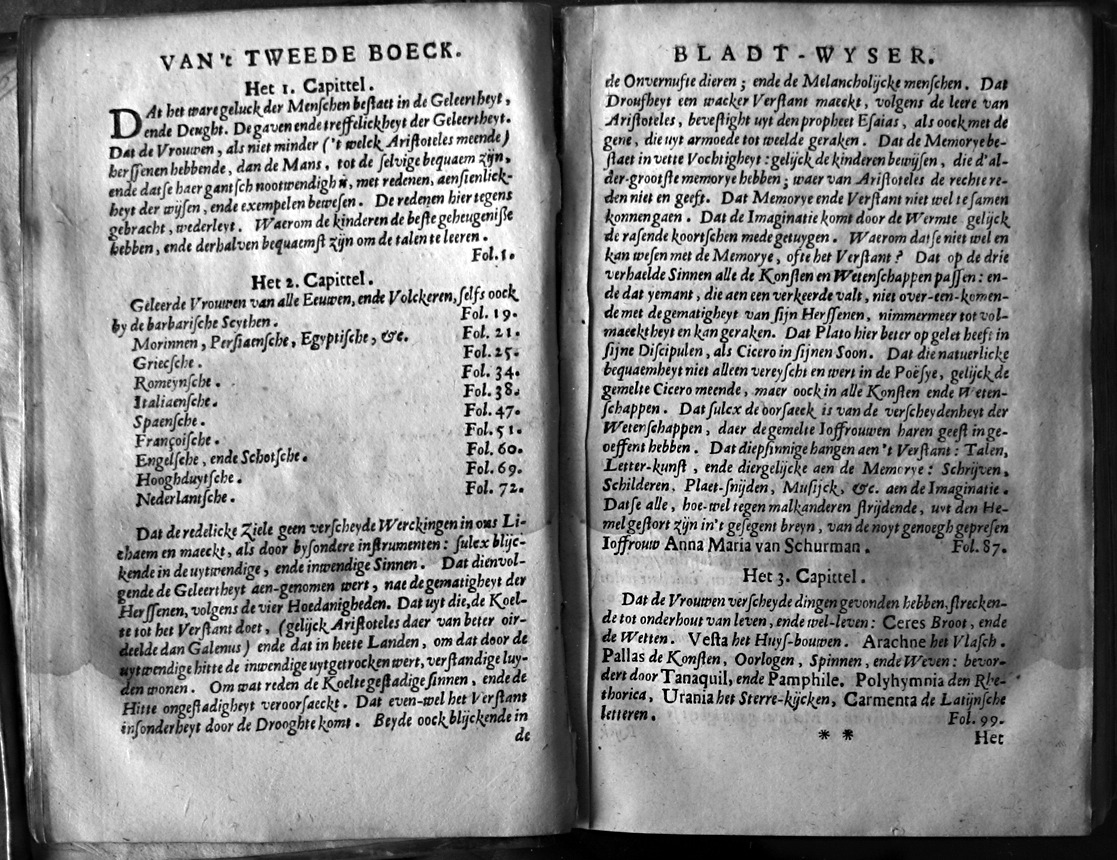 VAN 't TWEEDE BOECK.
Het 1. Capittel.
DAt het ware geluck der Menſchen beſtaet in de Geleertheyt,
ende Deught. De gaven ende treffelickheyt der Geleertheyt.
Dat de Vrouwen, als niet minder ('t welck Ariſtoteles meende)
herſſenen hebbende, dan de Mans, tot de ſelvige bequaem zijn,
ende datſe haer gantſch nootwendigh is, met redenen, aenſienlick-
heyt der wijſen, ende exempelen beweſen. De redenen hier tegens
gebracht, wederleyt. Waerom de kinderen de beſte geheugeniſſe
hebben, ende derhalven bequaemſt zijn om de talen te leeren.
Fol. 1.
Het 2. Capittel.
Geleerde Vrouwen van alle Eeuwen, ende Volckeren, ſelfs oock
by de barbariſche Scythen. Fol. 19.
Morinnen, Perſiaenſche, Egyptiſche, &c. Fol. 21.
Griecſche. Fol. 25.
Romeynſche. Fol. 34.
Italiaenſche. Fol. 38.
Spaenſche. Fol. 47.
Françoiſche. Fol. 51.
Engelſche, ende Schotſche. Fol. 60.
Hooghduytſche. Fol. 69.
Nederlantſche. Fol. 72.
Dat de redelicke Ziele geen verſcheyde Werckingen in ons Li-
chaem en maeckt, als door byſondere inſtrumenten: ſulcx blijc-
kende in de uytwendige, ende inwendige Sinnen. Dat dienvol-
gende de Geleertheyt aen-genomen wert, nae de gematigheyt der
Herſſenen, volgens de vier Hoedanigheden. Dat uyt die, de Koel-
te tot het Verſtant doet, (gelijck Ariſtoteles daer van beter oir-
deelde dan Galenus) ende dat in heete Landen, om dat door de
uytwendige hitte de inwendige uytgetrocken wert, verſtandige luy-
den wonen. Om wat reden de Koelte geſtadige ſinnen, ende de
Hitte ongeſtadigheyt veroorſaeckt. Dat even-wel het Verſtant
inſonderheyt door de Drooghte komt. Beyde oock blijckende in
de
BLADT-WYSER.
de Onvernufte dieren; ende de Melancholijcke menſchen. Dat
Drouſheyt een wacker Verſtant maeckt, volgens de leere van
Ariſtoteles, beveſtight uyt den propheet Eſaias, als oock met de
gene, die uyt armoede tot weelde geraken. Dat de Memorye be-
ſtaet in vette Vochtigheyt: gelijck de kinderen bewijſen, die d'al-
der-grootſte memorye hebben; waer van Ariſtoteles de rechte re-
den niet en geeft. Dat Memorye ende Verſtant niet wel te ſamen
konnen gaen. Dat de Imaginatie komt door de Wermte gelijck
de raſende koortſchen mede getuygen. Waerom datſe niet wel en
kan weſen met de Memorye, ofte het Verſtant? Dat op de drie
verhaelde Sinnen alle de Konſten en Wetenſchappen paſſen: en-
de dat yemant, die aen een verkeerde valt, niet over-een-komen-
de met de gematigheyt van ſijn Herſſenen, nimmermeer tot vol-
maeckt heyt en kan geraken. Dat Plato hier beter op gelet heeft in
ſijne Diſcipulen, als Cicero in ſijnen Soon. Dat die natuerlicke
bequaemheyt niet alleen vereyſcht en wert in de Poëſye, gelijck de
gemelte Cicero meende, maer oock in alle Konſten ende Weten-
ſchappen. Dat ſulcx de oorſaeck is van de verſcheydenheyt der
Wetenſchappen, daer de gemelte Ioffrouwen haren geeſt in ge-
oeffent hebben. Dat diepſinnige hangen aen 't Verſtant: Talen,
Letter-kunſt, ende diergelijcke aen de Memorye: Schrijven,
Schilderen, Plaet-ſnijden, Muſijck, &c. aen de Imaginatie.
Datſe alle, hoe-wel tegen malkanderen ſtrijdende, uyt den He-
mel geſtort zijn in't geſegent breyn, van de noyt genoegh gepreſen
Ioffrouw Anna Maria van Schurman. Fol. 87.
Het 3. Capittel.
Dat de Vrouwen verſcheyde dingen gevonden hebben, ſtrecken-
de tot onderhout van leven, ende wel-leven: Ceres Broot, ende
de Wetten. Veſta het Huyſ-bouwen. Arachne het Vlaſch.
Pallas de Konſten, Oorlogen, Spinnen, ende Weven: bevor-
dert door Tanaquil, ende Pamphile. Polyhymnia den Rhe-
thorica, Urania het Sterre-kijcken, Carmenta de Latijnſche
letteren. Fol. 99.
* * Het